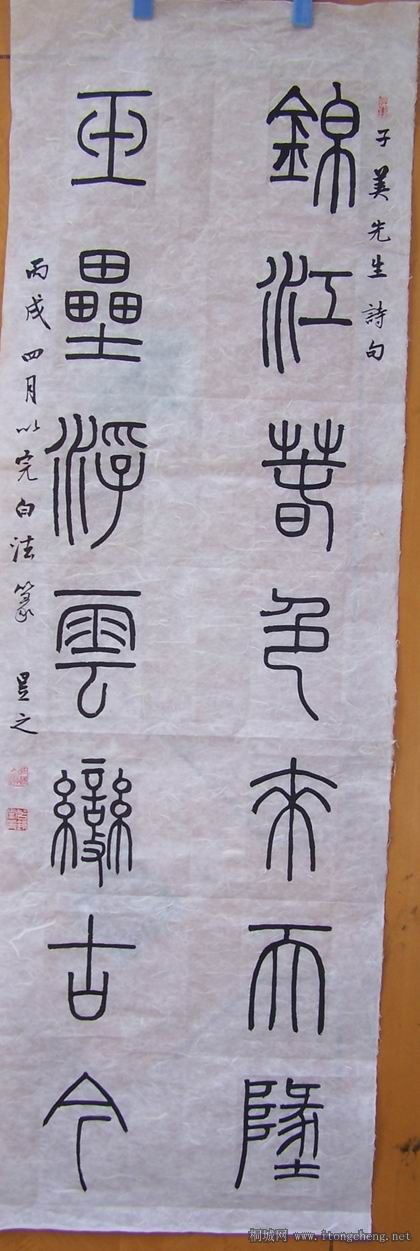 子美先生詩句
錦江春色來天地
玉壘浮雲變古今
丙戌四月以完白法篆
桐城网 -www.itongcheng.net